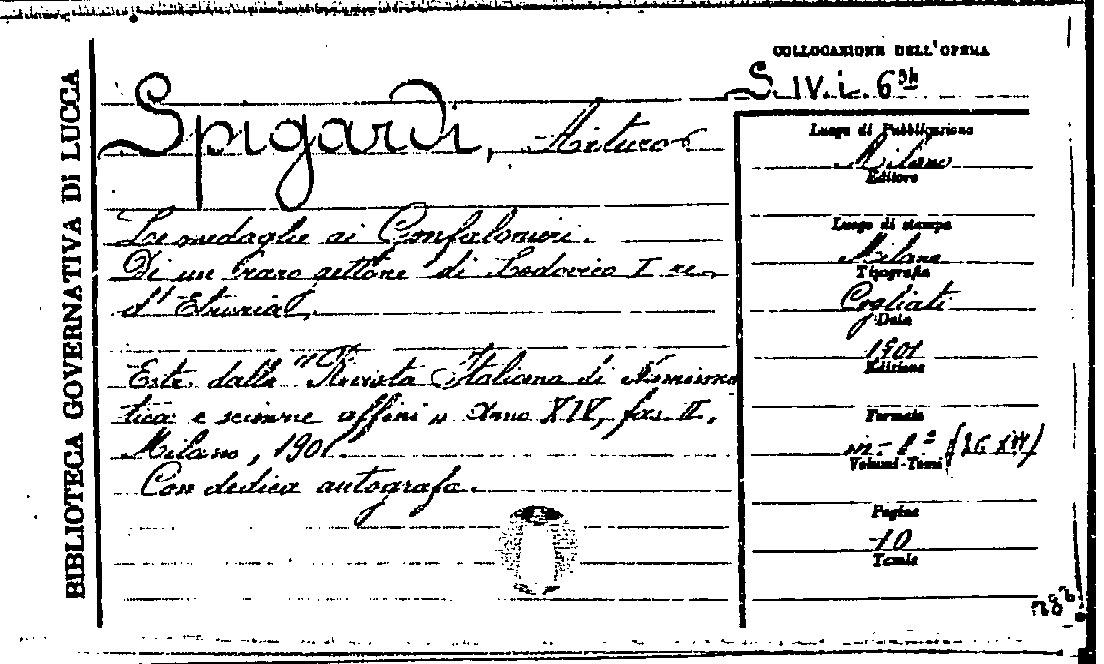 BIBLIOTECA GOVERNATIVA DI LUCCA
Spigardi, Arturo
Le medaglie ai Gonfalonieri.
Di un raro gettone di Lodovico I re
d'Etruria.
Estr. dalla "Rivista Italiana di Numisma
tica e scienze affini" Anno XIV, fas. II,
Milano, 1901.
Con dedica autografa.
COLLOCAZIONE DELL'OPERA
S. IV. i. 6
Luogo di Pubblicazione
Milano
Editore
Luogo di stampa
Milano
Tipografia
Cogliati
Data
1901
Edizione
Formato
in-8° (26 X
Volumi-Tomi
Pagine
10
Tavole